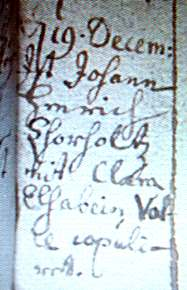 19. Decem:
Ist Johann
Emrich
Chorholtz
mit Clara
Elsabein Vol-
te copuli-
rett.